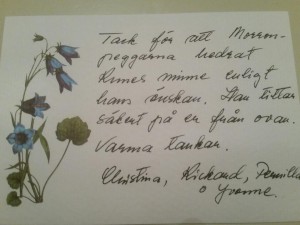 Tack för att Morron-
preggarna hedrat
Runes minne enligt
hans önskan. Han tittar
säkert på er från ovan.
Varma tankar.
Christina, Rickard, Pernilla
o Yvonne.